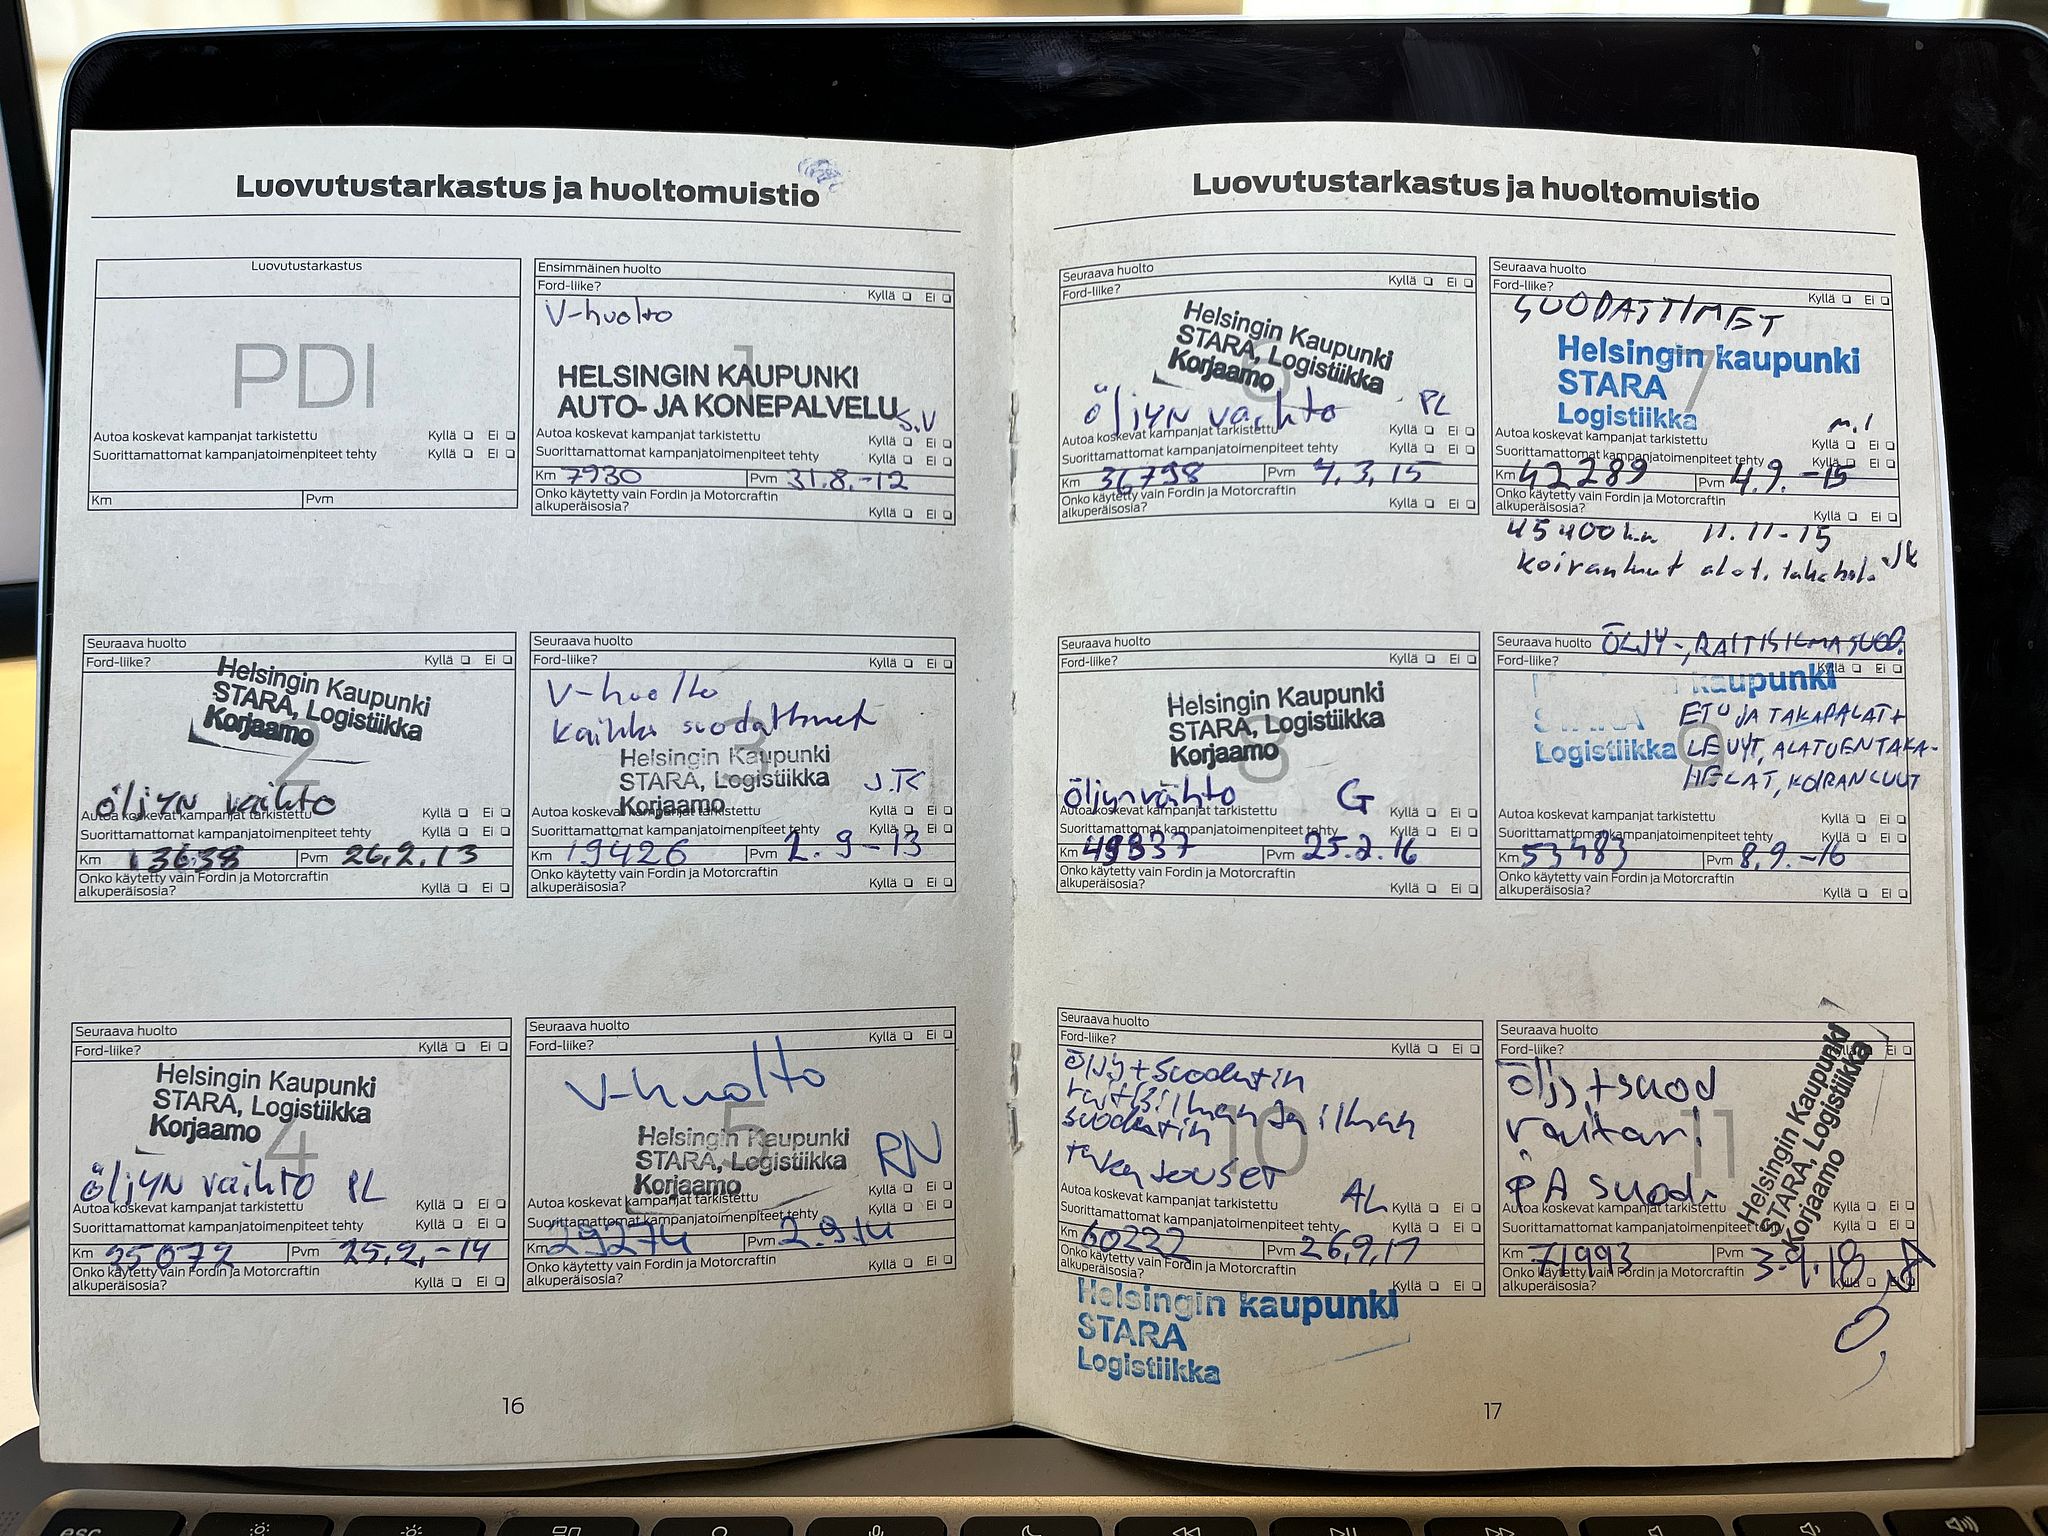 Luovutustarkastus ja huoltomuistio
Luovutustarkastus
PDI
Autoa koskevat kampanjat tarkistettu Kyllä Ei
Suorittamattomat kampanjatoimenpiteet tehty Kyllä Ei
Km Pvm
Ensimmäinen huolto
Ford-liike? Kyllä Ei
V-huolto
1
HELSINGIN KAUPUNKI
AUTO- JA KONEPALVELU
S.V
Autoa koskevat kampanjat tarkistettu Kyllä Ei
Suorittamattomat kampanjatoimenpiteet tehty Kyllä Ei
Km 7930 Pvm 31.8.-12
Onko käytetty vain Fordin ja Motorcraftin
alkuperäisosia? Kyllä Ei
Seuraava huolto
Ford-liike? Kyllä Ei
Helsingin Kaupunki
STARA, Logistiikka
Korjaamo
2
öljyn vaihto
Autoa koskevat kampanjat tarkistettu Kyllä Ei
Suorittamattomat kampanjatoimenpiteet tehty Kyllä Ei
Km 13638 Pvm 26.2.13
Onko käytetty vain Fordin ja Motorcraftin
alkuperäisosia? Kyllä Ei
Seuraava huolto
Ford-liike? Kyllä Ei
V-huolto
kaikki suodattimet
3
Helsingin Kaupunki
STARA, Logistiikka
Korjaamo
J.K
Autoa koskevat kampanjat tarkistettu Kyllä Ei
Suorittamattomat kampanjatoimenpiteet tehty Kyllä Ei
Km 19426 Pvm 2.9-13
Onko käytetty vain Fordin ja Motorcraftin
alkuperäisosia? Kyllä Ei
Seuraava huolto
Ford-liike? Kyllä Ei
Helsingin Kaupunki
STARA, Logistiikka
Korjaamo
4
öljyn vaihto PL
Autoa koskevat kampanjat tarkistettu Kyllä Ei
Suorittamattomat kampanjatoimenpiteet tehty Kyllä Ei
Km 25072 Pvm 25.2.-14
Onko käytetty vain Fordin ja Motorcraftin
alkuperäisosia? Kyllä Ei
Seuraava huolto
Ford-liike? Kyllä Ei
V-huolto
5
Helsingin Kaupunki
STARA, Logistiikka
Korjaamo
RN
Autoa koskevat kampanjat tarkistettu Kyllä Ei
Suorittamattomat kampanjatoimenpiteet tehty Kyllä Ei
Km 29274 Pvm 2.9.14
Onko käytetty vain Fordin ja Motorcraftin
alkuperäisosia? Kyllä Ei
16
Luovutustarkastus ja huoltomuistio
Seuraava huolto
Ford-liike? Kyllä Ei
Helsingin Kaupunki
STARA, Logistiikka
Korjaamo
6
öljyn vaihto PL
Autoa koskevat kampanjat tarkistettu Kyllä Ei
Suorittamattomat kampanjatoimenpiteet tehty Kyllä Ei
Km 36798 Pvm 4.3.15
Onko käytetty vain Fordin ja Motorcraftin
alkuperäisosia? Kyllä Ei
Seuraava huolto
Ford-liike? Kyllä Ei
SUODATTIMET
7
Helsingin kaupunki
STARA
Logistiikka
M.I
Autoa koskevat kampanjat tarkistettu Kyllä Ei
Suorittamattomat kampanjatoimenpiteet tehty Kyllä Ei
Km 42289 Pvm 4.9.-15
Onko käytetty vain Fordin ja Motorcraftin
alkuperäisosia? Kyllä Ei
45400 km 11.11-15
koiranluut alat. JK
Seuraava huolto
Ford-liike? Kyllä Ei
Helsingin Kaupunki
STARA, Logistiikka
Korjaamo
8
öljynvaihto G
Autoa koskevat kampanjat tarkistettu Kyllä Ei
Suorittamattomat kampanjatoimenpiteet tehty Kyllä Ei
Km 49837 Pvm 25.2.16
Onko käytetty vain Fordin ja Motorcraftin
alkuperäisosia? Kyllä Ei
Seuraava huolto ÖLJY-, RAITISILMASUOD.
Ford-liike? Kyllä Ei
kaupunki
STARA
Logistiikka
9
ETU JA TAKAPALAT+
LEVYT, ALATUEN TAKA-
HELAT, KOIRANLUUT
Autoa koskevat kampanjat tarkistettu Kyllä Ei
Suorittamattomat kampanjatoimenpiteet tehty Kyllä Ei
Km 53483 Pvm 8.9.-16
Onko käytetty vain Fordin ja Motorcraftin
alkuperäisosia? Kyllä Ei
Seuraava huolto
Ford-liike? Kyllä Ei
öljy+suodatin
raitisilman ja ilman
suodatin
taka jouset
10
AL
Autoa koskevat kampanjat tarkistettu Kyllä Ei
Suorittamattomat kampanjatoimenpiteet tehty Kyllä Ei
Km 60222 Pvm 26.9.17
Onko käytetty vain Fordin ja Motorcraftin
alkuperäisosia? Kyllä Ei
Helsingin kaupunki
STARA
Logistiikka
Seuraava huolto
Ford-liike? Ei
öljy+suod
raitari
PA suod.
11
Helsingin Kaupunki
STARA, Logistiikka
Korjaamo
Autoa koskevat kampanjat tarkistettu Kyllä Ei
Suorittamattomat kampanjatoimenpiteet tehty Kyllä Ei
Km 71993 Pvm 3.9.18
Onko käytetty vain Fordin ja Motorcraftin
alkuperäisosia? Kyllä Ei
17
esc